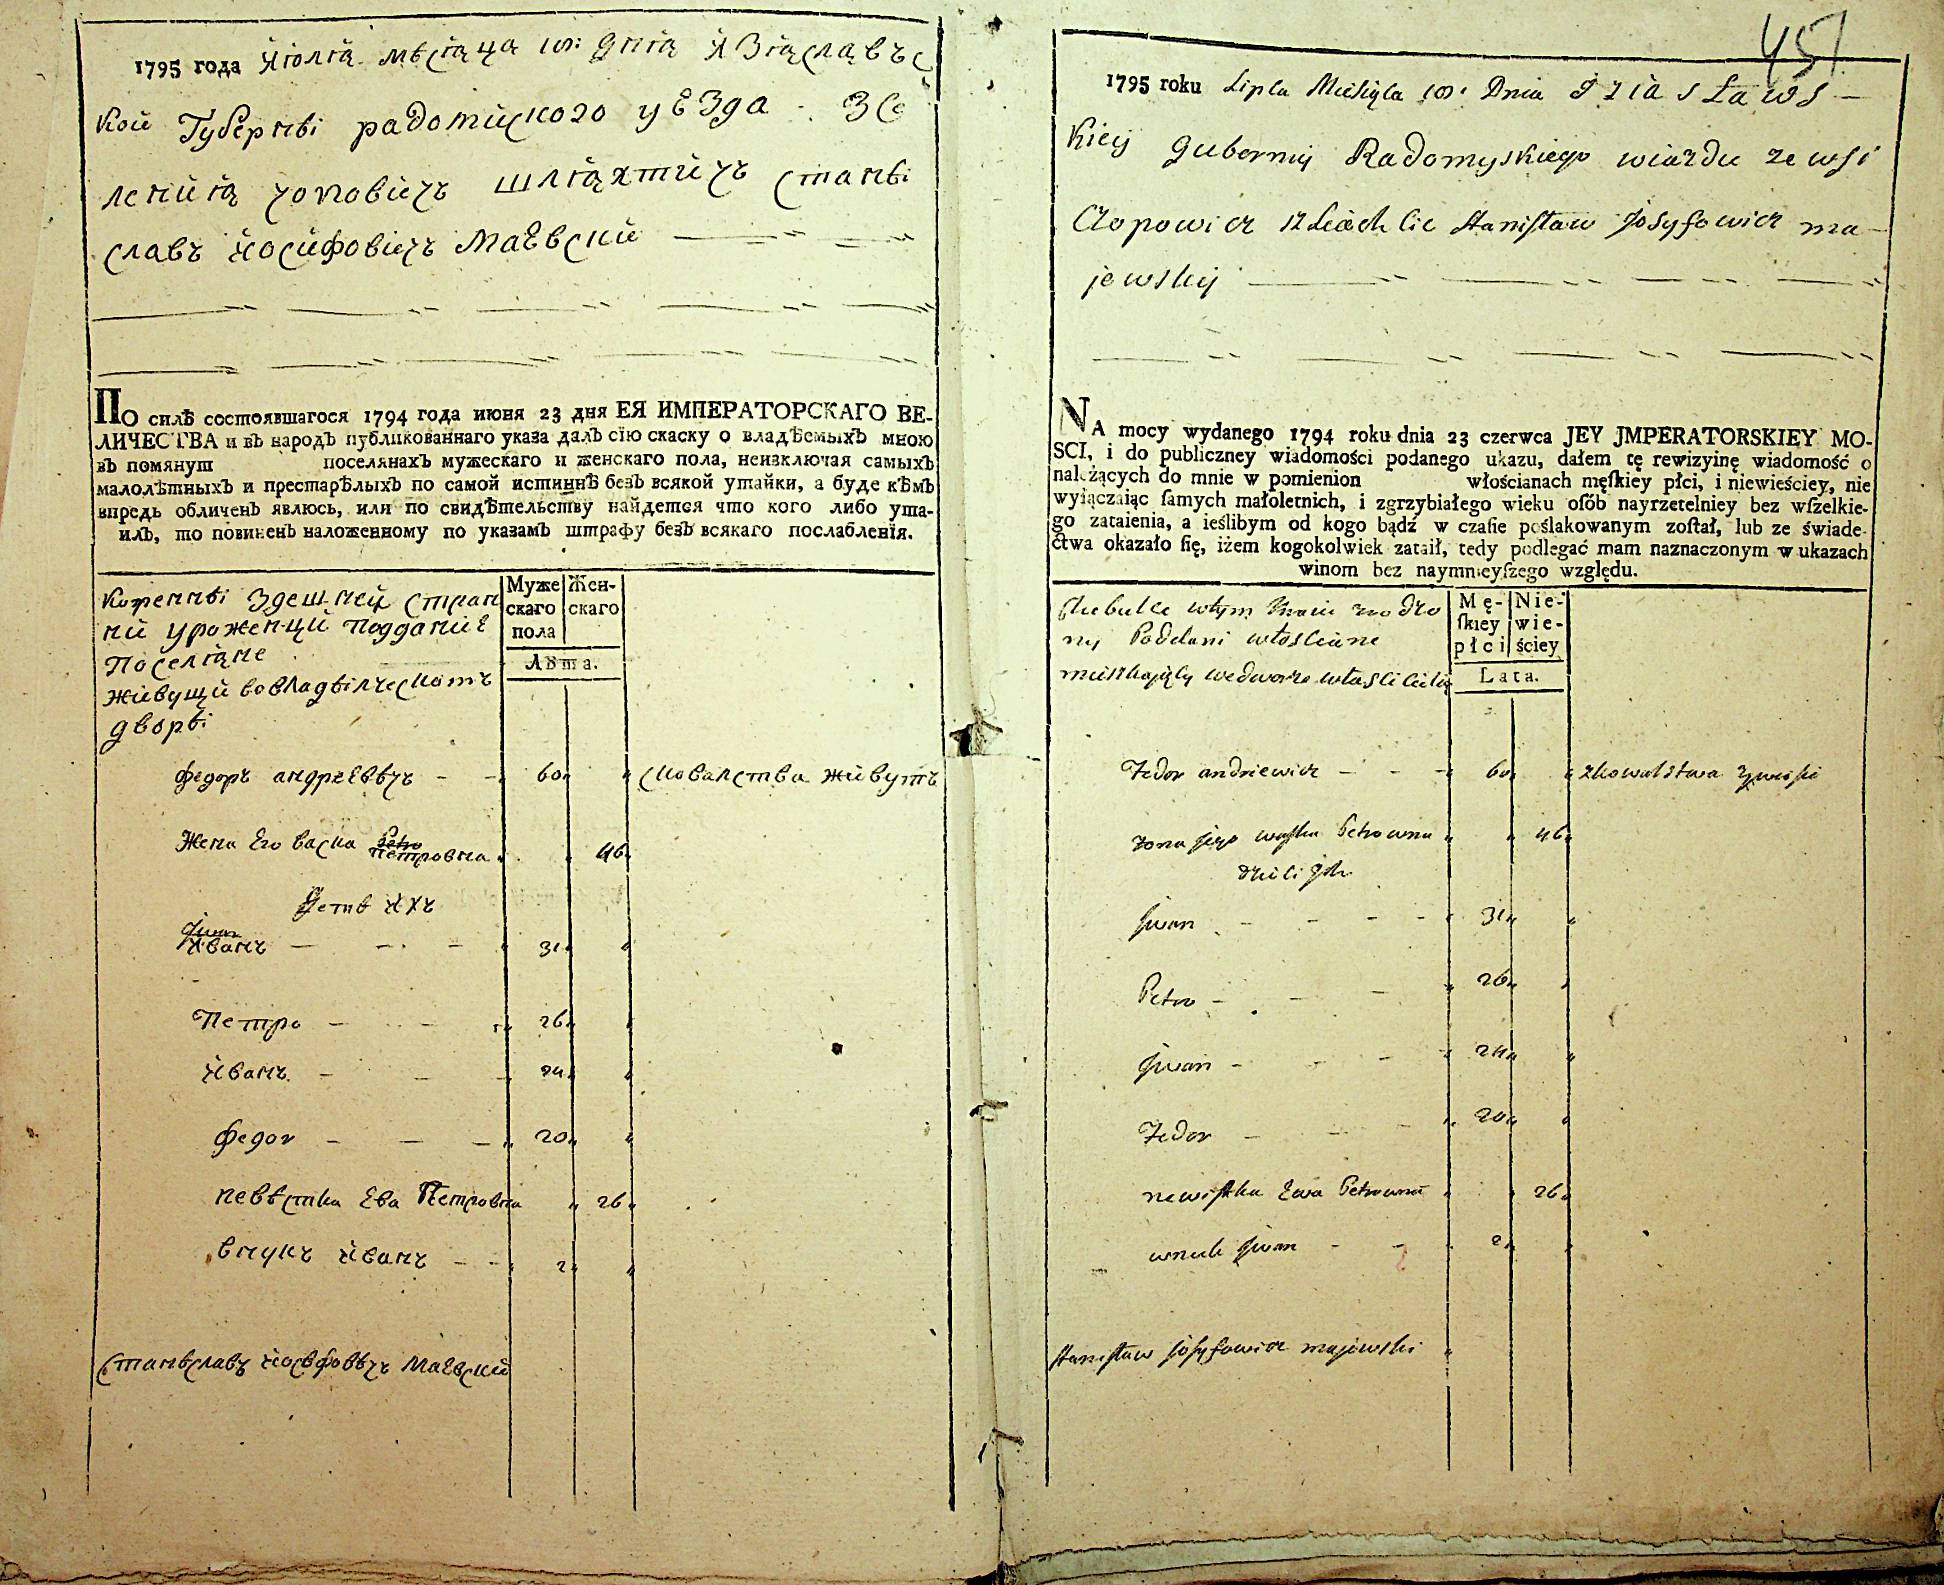 1795 года июлiя мѣсяца 10: дня Изяславъс
кой Губернѣi радомиского уезда З Се
ленiия Чоповичъ шляхтичъ Станѣ
славъ Йосифовичъ Маевский
По силѣ состоявшагося 1794 года июня 23 дня ЕЯ ИМПЕРАТОРСКАГО ВЕ-
ЛИЧЕСТВА и въ народъ публикованнаго указа далъ сїю скаску о владѣемыхъ мною
въ помянут поселянахъ мужескаго и женскаго пола, неизключая самыхъ
малолѣтныхъ и престарѣлыхъ по самой истиннѣ безъ всякой утайки, а буде кѣмъ
впредь обличенъ явлюсь, или по свидѣтельству найдется что кого либо ута-
илъ, то повиненъ наложенному по указамъ штрафу безъ всякаго послабленїя.
Муже
скаго
пола
Жен-
скаго
Лѣта.
Кореннѣi здешней стран
ни уроженци подданиѣ
Поселяне
живущи вовладѣлческомъ
дворѣi
Федоръ андрѣевѣчъ 60 сковалства живутъ
Жена Его васка Petro Петровна 46
Дети ихъ
Jwan
Иванъ 31
Петро 26
Иванъ 24
Федоr 20
невѣстка Ева Петровна 26
внукъ иванъ 2
Станѣславъ йосѣфовѣчъ Маевский
451
1795 roku Lipca Miesiąca 10: Dnia Jziasławs
kiey gubernij Radomyskiego wiazdu ze wsi
Czopowicz szliachcic Stanisław Josyfowicz ma-
jewskij
NA mocy wydanego 1794 roku dnia 23 czerwca JEY JMPERATORSKIEY MO-
SCI, i do publiczney wiadomości podanego ukazu, dałem tę rewizyinę wiadomość o
należących do mnie w pomienion włościanach męſkiey płci, i niewieściey, nie
wyłączaiąc ſamych małoletnich, i zgrzybiałego wieku oſób nayrzetelniey bez wſzelkie-
go zataienia, a ieślibym od kogo bądź w czaſie poślakowanym zoſtał, lub ze świade-
ctwa okazało ſię, iżem kogokolwiek zataił, tedy podlegać mam naznaczonym w ukazach
winom bez naymnieyſzego względu.
Mę-
ſkiey
płci
Nie-
wie-
ściey
Lata.
wtym kraiu zrodzo
ny Poddani włosciane
mieszkaiący wedworze własciciela
Fedor andriewicz 60 zkowalstwa
zona jego waska Petrowna 46
dzieci ich
Jwan 31
Petro 26
Jwan 24
Fedor 20
newistka Ewa Petrowna 26
wnuk Jwan 2
Stanisław Josyfowicz majewski